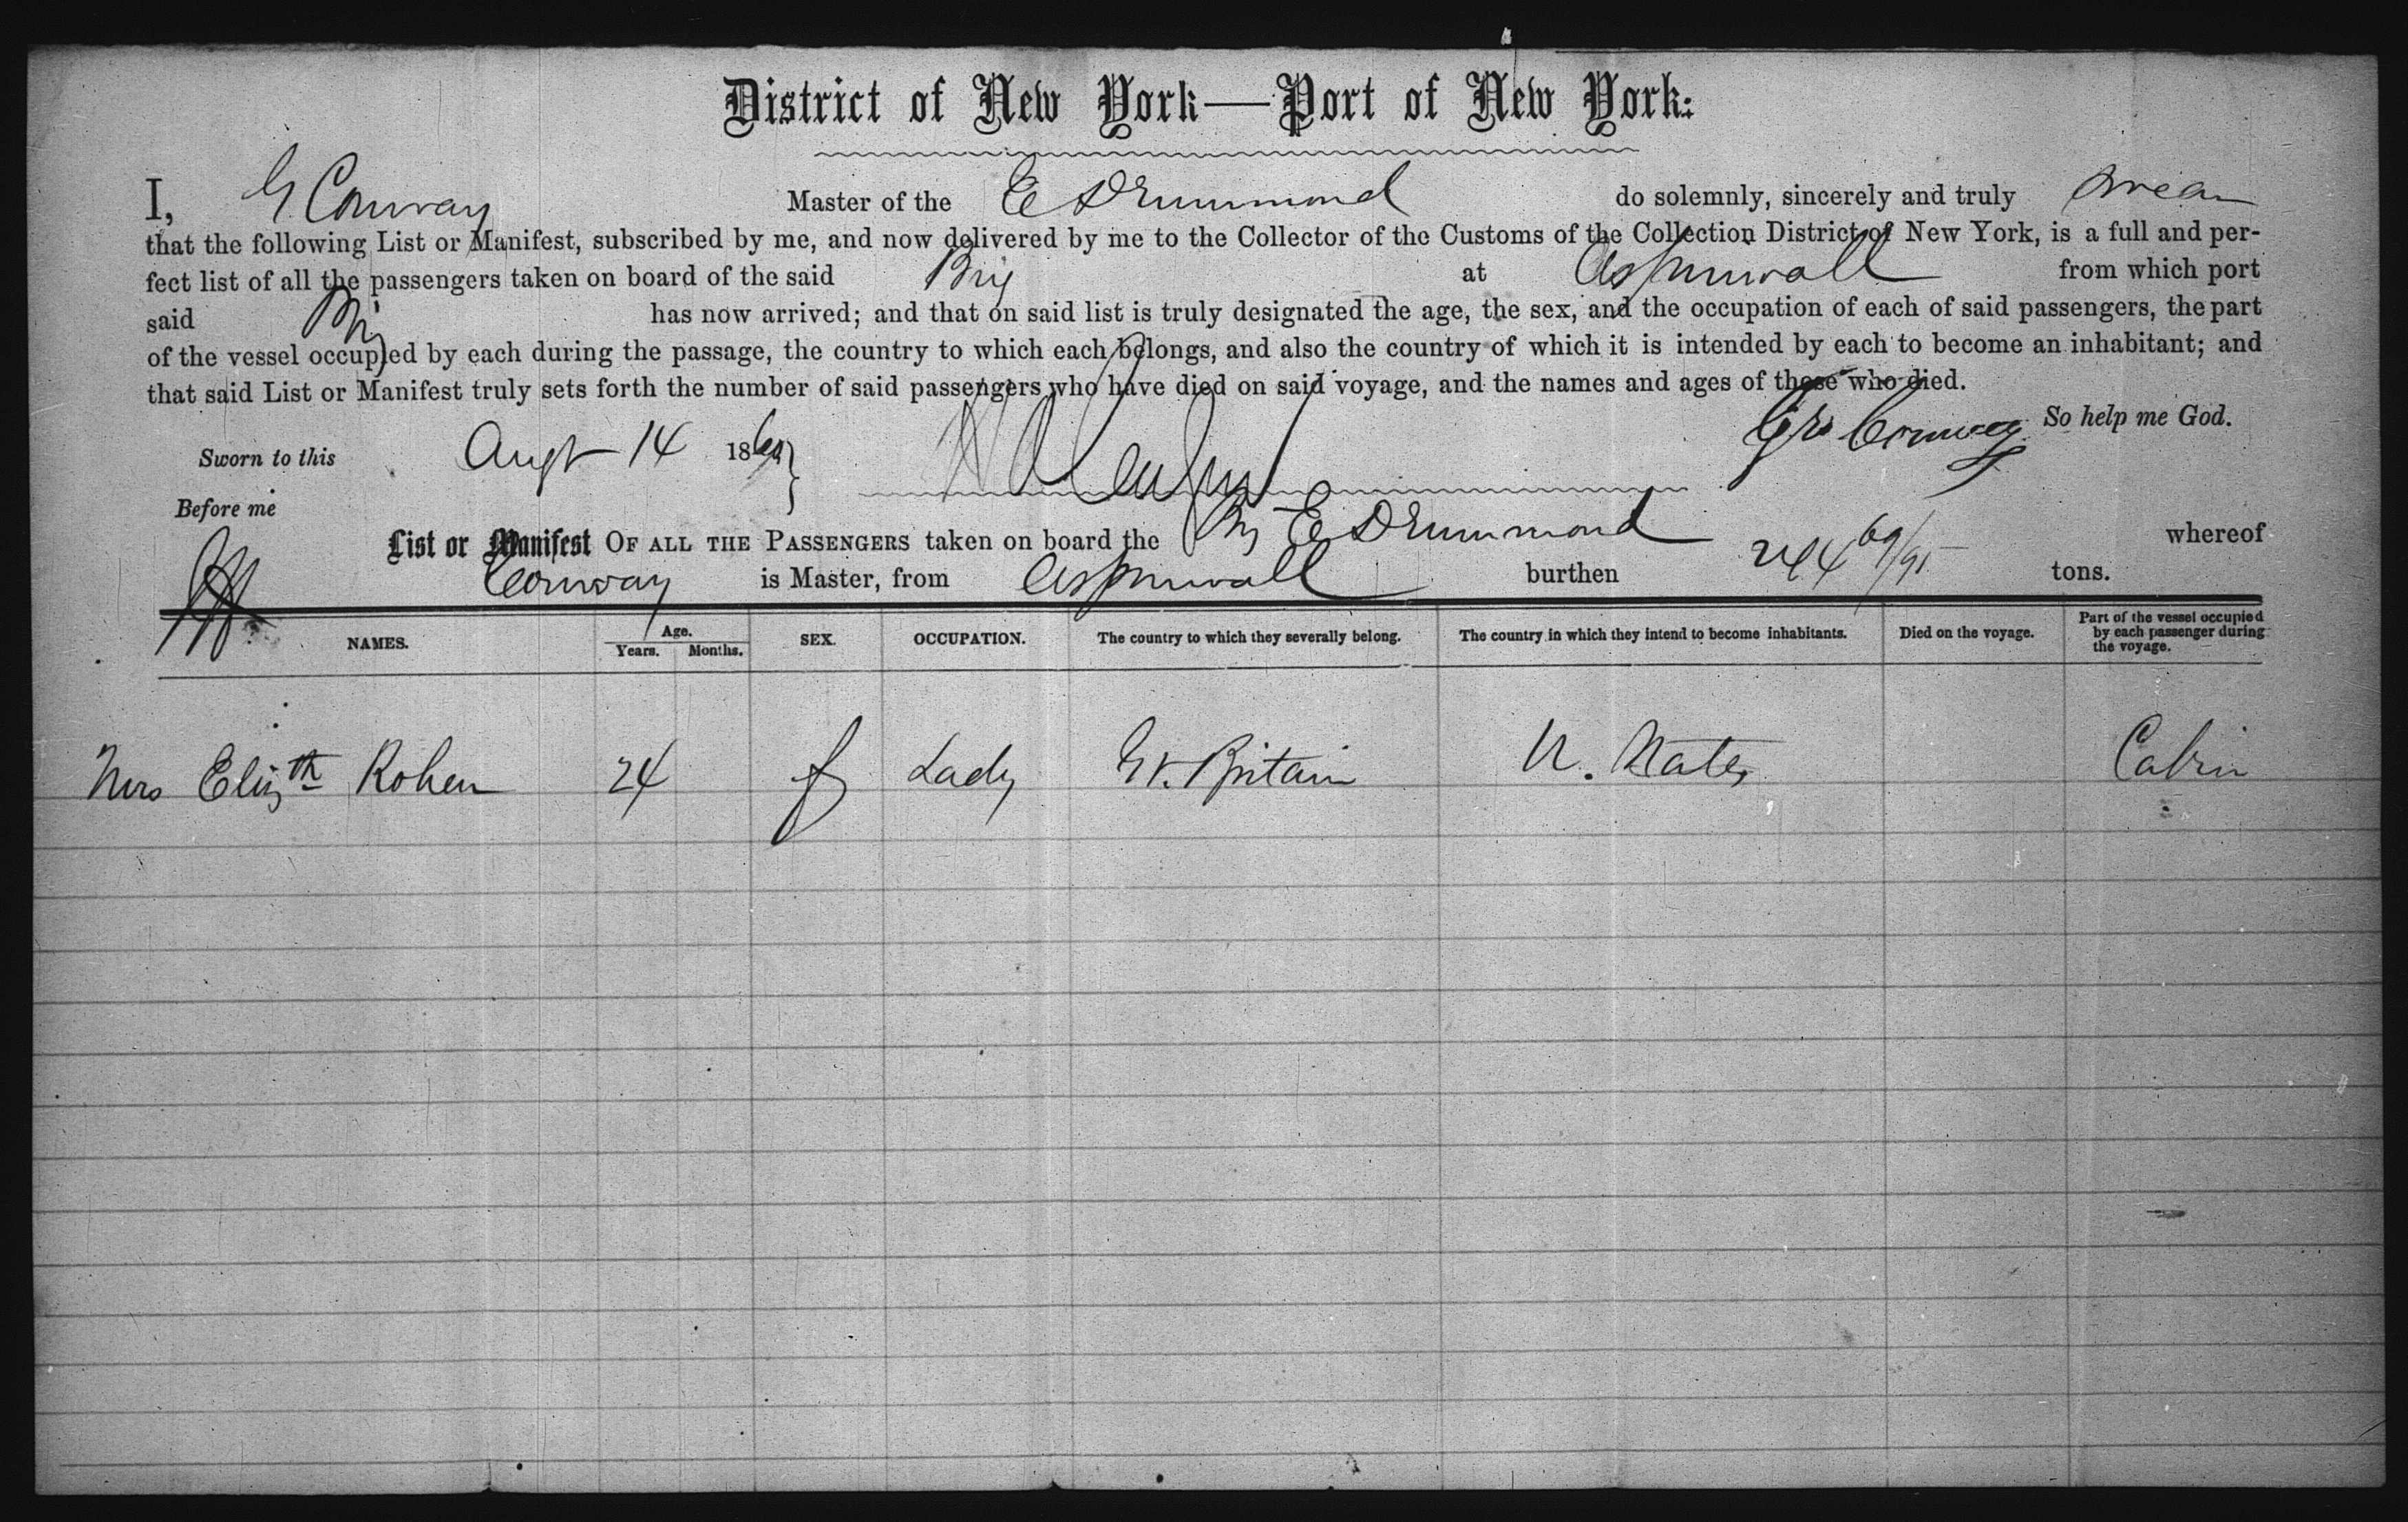 District of New York—Port of New York:
I, G Conway Master of the E Drummond do solemnly, sincerely and truly swear
that the following List or Manifest, subscribed by me, and now delivered by me to the Collector of the Customs of the Collection District of New York, is a full and per-
fect list of all the passengers taken on board of the said Brig at Aspinwall from which port
said Brig has now arrived; and that on said list is truly designated the age, the sex, and the occupation of each of said passengers, the part
of the vessel occupied by each during the passage, the country to which each belongs, and also the country of which it is intended by each to become an inhabitant; and
that said List or Manifest truly sets forth the number of said passengers who have died on said voyage, and the names and ages of those who died.
Conway So help me God.
Sworn to this Augt 14 186
Before me
List or Manifest OF ALL THE PASSENGERS taken on board the Brig E Drummond whereof
Conway is Master, from Aspinwall burthen 244 69/95 tons.
NAMES. Age. Years. Months. SEX. OCCUPATION. The country to which they severally belong. The country in which they intend to become inhabitants. Died on the voyage. Part of the vessel occupied by each passenger during the voyage.
Mrs Elizth Rohen 24 f Lady Gt. Britain U. States Cabin